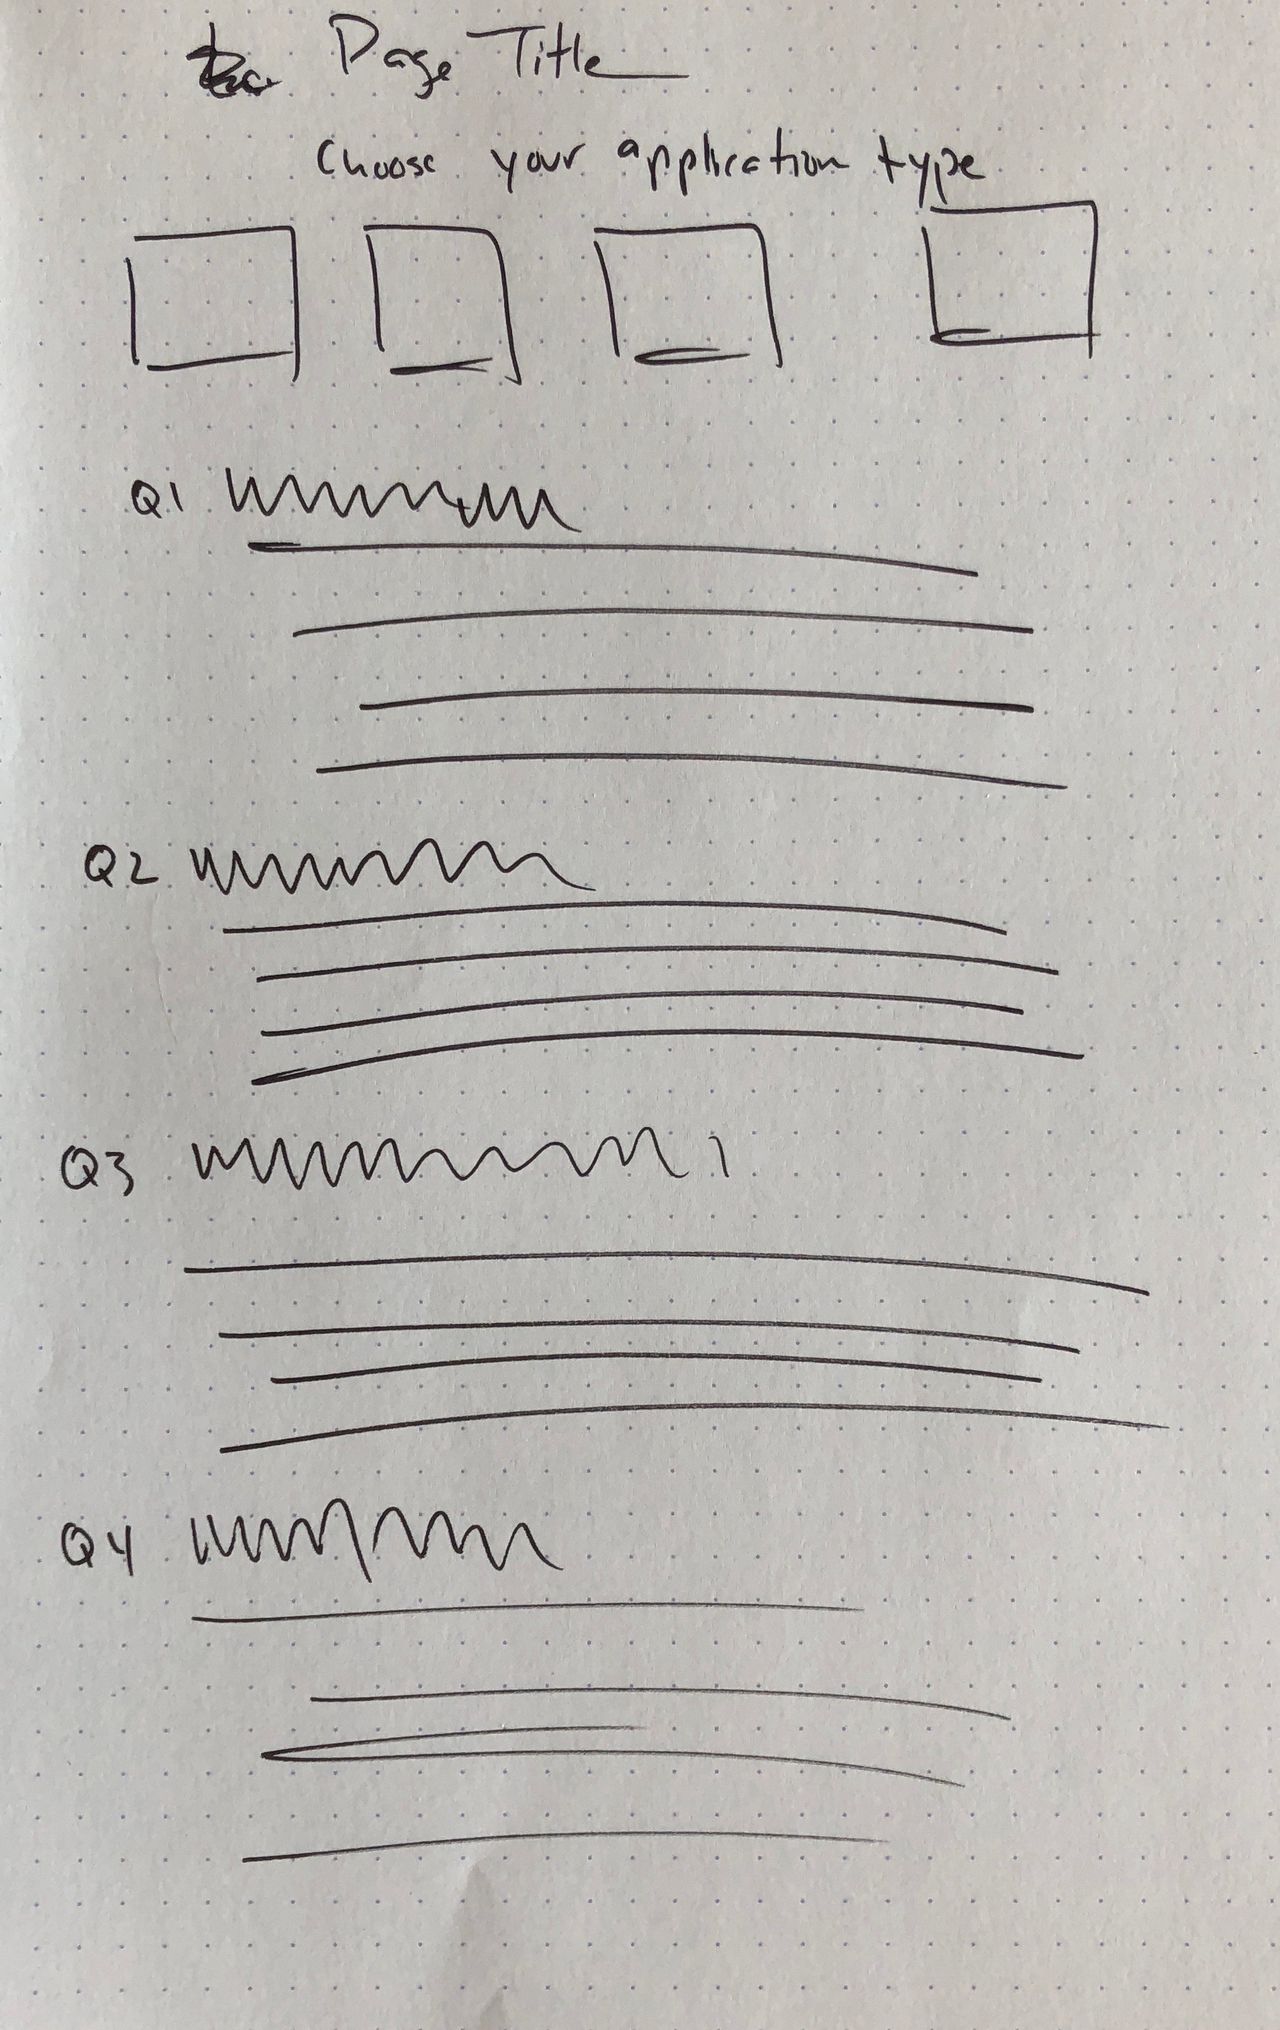 Page Title
Choose your application type
Q1
Q2
Q3
Q4